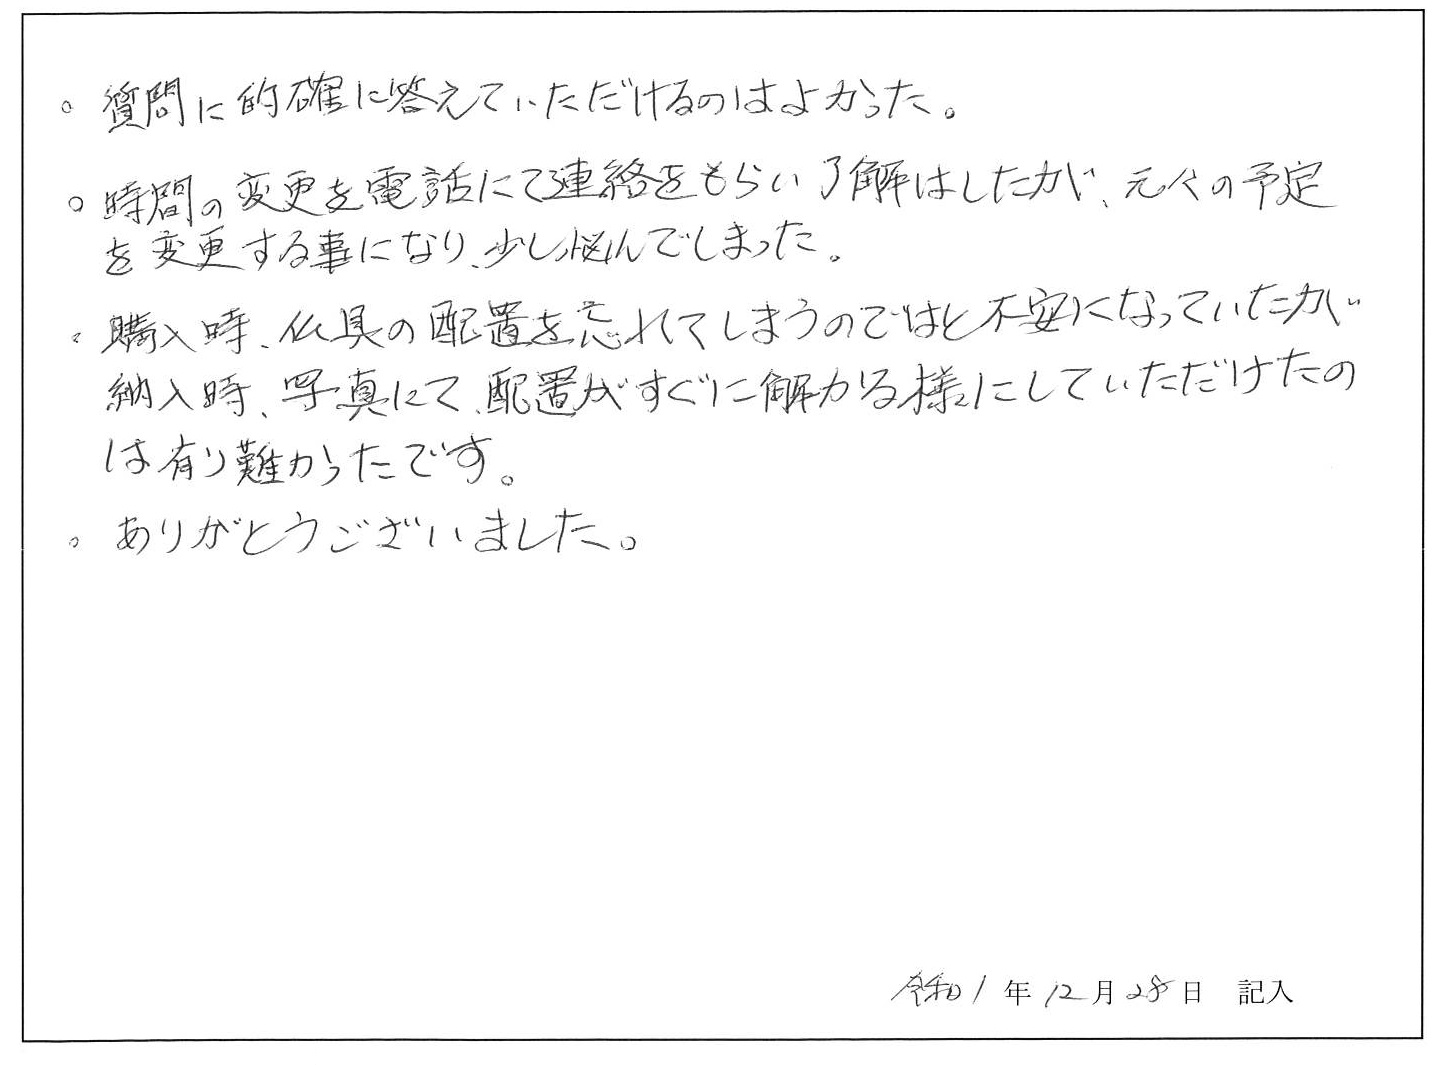 。質問に的確に答えていただけるのはよかった。
。時間の変更を電話にて連絡をもらい了解はしたが、元々の予定
を変更する事になり、少し悩んでしまった。
。購入時、仏具の配置を忘れてしまうのではと不安になっていたが
納入時、写真にて、配置がすぐに解かる様にしていただけたの
は有り難かったです。
。ありがとうございました。
令和1年12月28日 記入